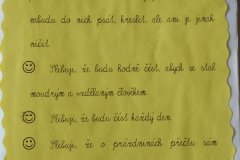 nebudu do nich psát, kreslit, ale ani je jinak
ničit.
Slibuji, že budu hodně číst, abych se stal
moudrým a vzdělaným člověkem.
Slibuji, že budu číst každý den.
Slibuji, že o prázdninách přečtu sám